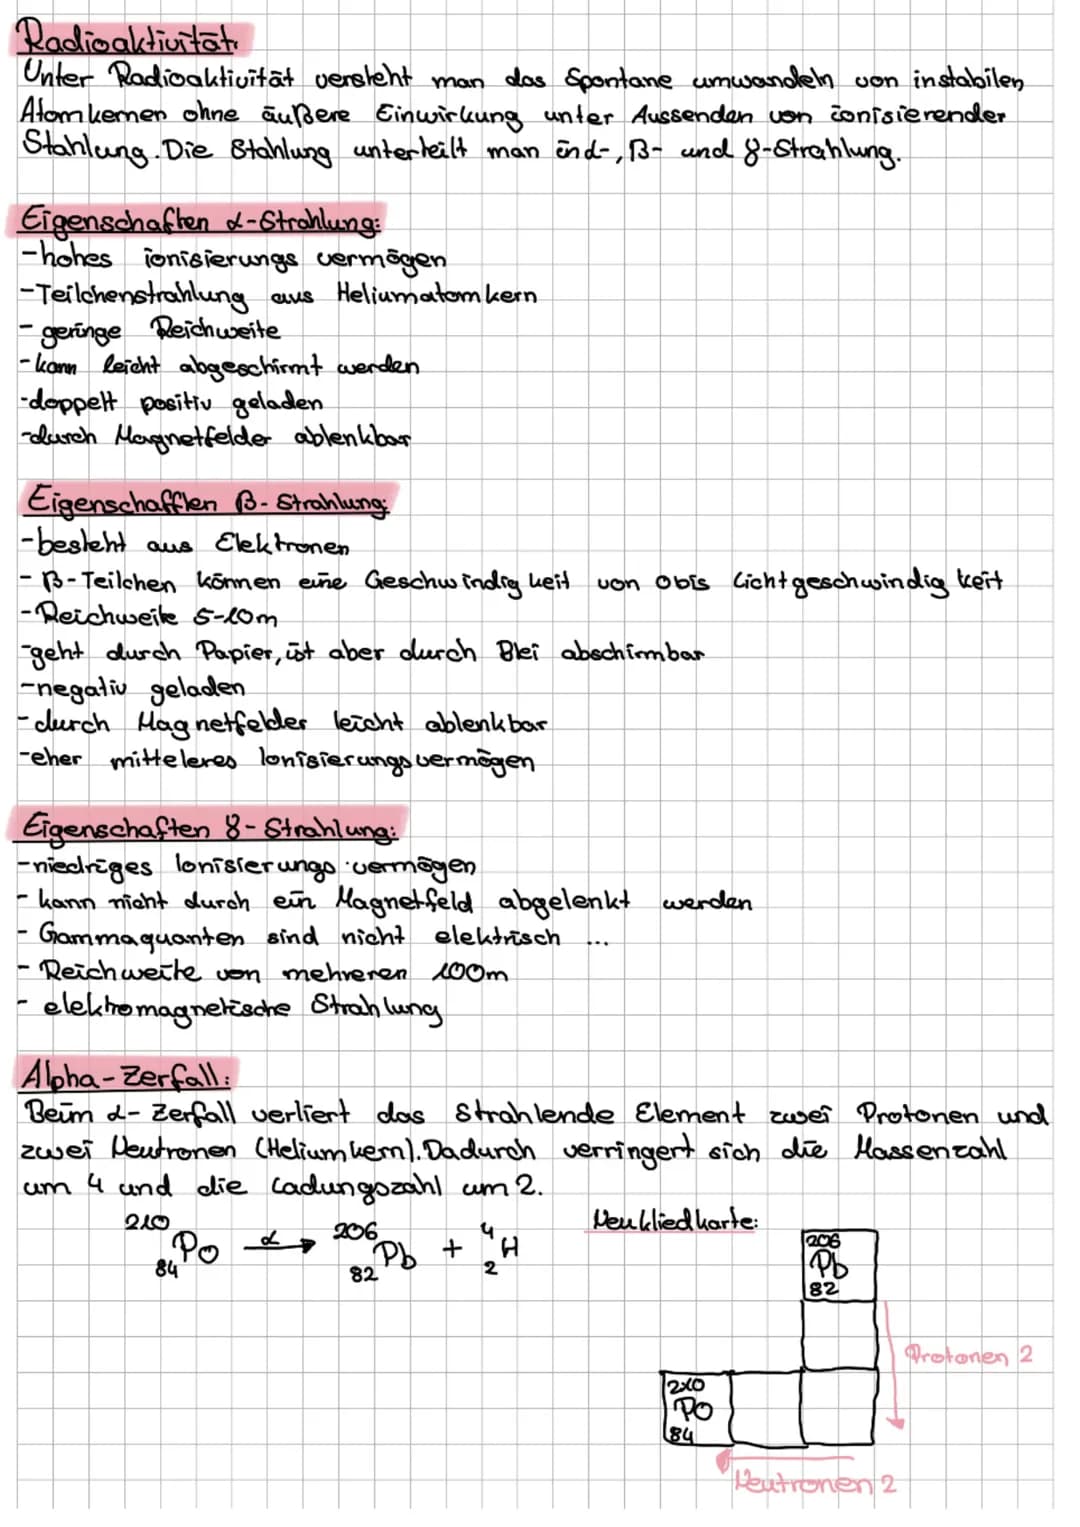 Radioaktivität:
Unter Radioaktivität versteht man das Spontane umwandeln von instabilen
Atomkernen ohne äußere Einwirkung unter Aussenden von ionisierender
Stahlung. Die Stahlung unterteilt man ind-, β- und γ-Strahlung.
Eigenschaften α-Strahlung:
-hohes ionisierungs vermögen
-Teilchenstrahlung aus Heliumatomkern
- geringe Reichweite
-kann leicht abgeschirmt werden
-doppelt positiv geladen
-durch Magnetfelder ablenkbar
Eigenschafften β-Strahlung:
-besteht aus Elektronen
- β-Teilchen können eine Geschwindigkeit von 0 bis Lichtgeschwindigkeit
-Reichweite 5-10m
-geht durch Papier, ist aber durch Blei abschirmbar
-negativ geladen
-durch Magnetfelder leicht ablenkbar
-eher mitteleres Ionisierungsvermögen
Eigenschaften γ-Strahlung:
-niedriges Ionisierungs vermögen
- kann nicht durch ein Magnetfeld abgelenkt werden
- Gammaquanten sind nicht elektrisch ...
- Reichweite von mehreren 100m
- elektromagnetische Strahlung
Alpha-Zerfall:
Beim α-Zerfall verliert das Strahlende Element zwei Protonen und
zwei Neutronen (Heliumkern). Dadurch verringert sich die Massenzahl
um 4 und die Ladungszahl um 2.
210 84 Po α → 206 82 Pb + 4 2 H
Neukliedkarte:
206
Pb
82
Protonen 2
210
Po
84
Neutronen 2